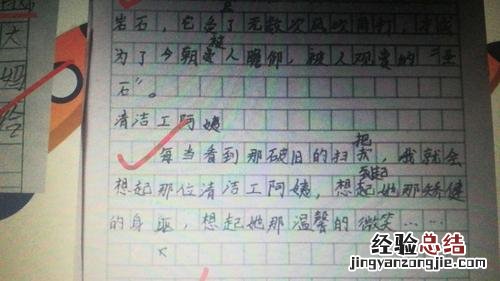 岩石，它了无数次风吹雨打，才成
为了今朝被人瞻仰，被人观赏的“
石”。
清洁工阿姨
每当看到那破旧的扫把，我就会
想起那位清洁工阿姨，想起她那矫健
的身躯，想起她那温馨的微笑……
大
妈
经验总结
jingyanzongjie.com